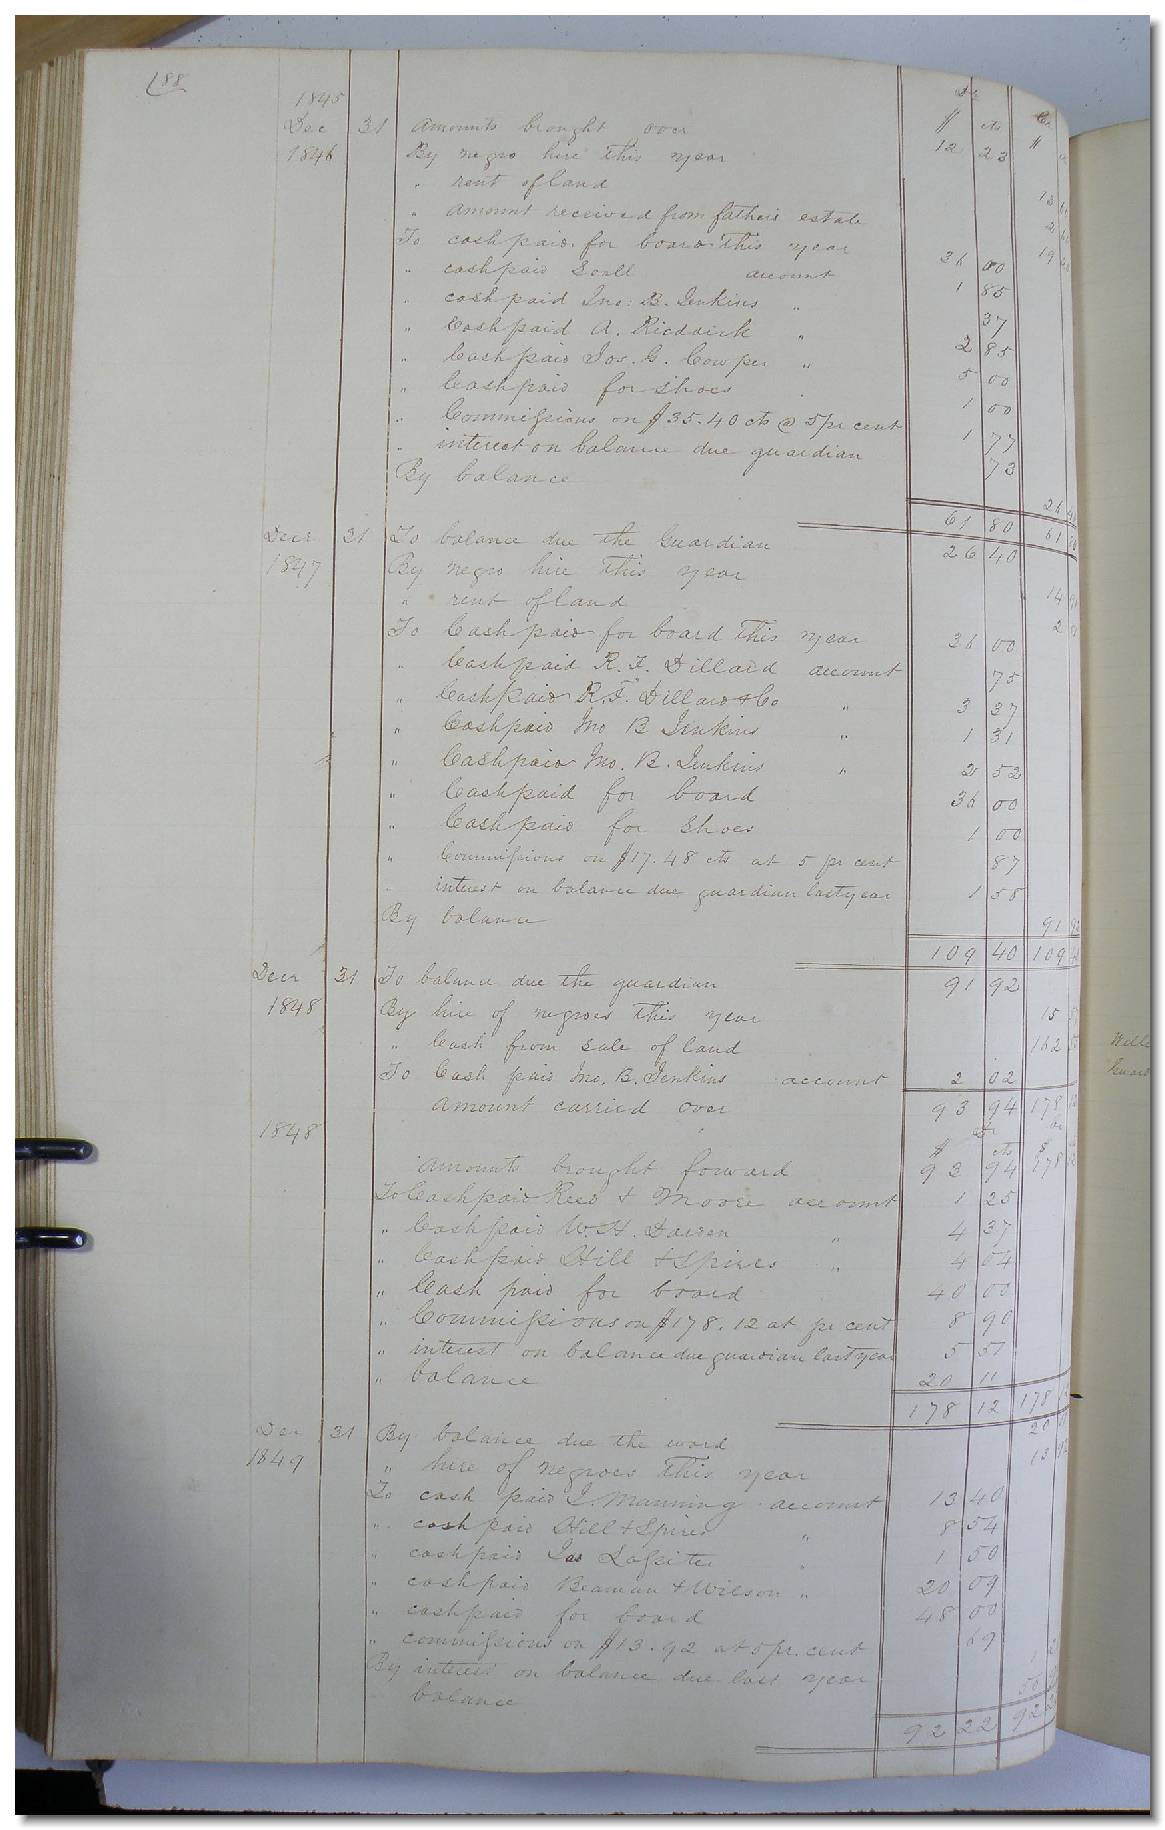 188
1845 Dr
Dec 31 Amounts brought over $ cts Cr
1846 By negro hire this year 12 23 $
" rent of land
" amount received from fathers estate
To cash paid for board this year 36 00 19
" cash paid account 1 85
" cash paid Jno. B. Jenkins " 37
" Cash paid A. Riddick " 2 85
" Cash paid Jos. G. Cowper " 5 00
" Cash paid for shoes 1 00
" Commissions on $35.40 cts @ 5 pr cent 1 77
" interest on balance due guardian 73
By balance 26 40
61 80 61 80
Decr 31 To balance due the Guardian 26 40
1847 By negro hire this year 14
" rent of land 2
To Cash paid for board this year 36 00
" Cash paid R. F. Dillard account 75
" Cash paid R. F. Dillard & Co " 3 37
" Cash paid Jno B Jenkins " 1 31
" Cash paid Jno. B. Jenkins " 2 52
" Cash paid for board 36 00
" Cash paid for shoes 1 00
" Commissions on $17.48 cts at 5 pr cent 87
" interest on balance due guardian last year 1 58
By balance 91 92
109 40 109 40
Decr 31 To balance due the guardian 91 92
1848 By hire of negroes this year 15
" Cash from sale of land 162
To Cash paid Jno. B. Jenkins account 2 02
Amount carried over 93 94 178 12
1848 Dr Cr
$ cts $
Amounts brought forward 93 94 178 12
To Cash paid Reed & Moore account 1 25
" Cash paid W. H. Darden " 4 37
" Cash paid Hill & Spires " 4 04
" Cash paid for board 40 00
" Commissions on $178.12 at pr cent 8 90
" interest on balance due guardian last year 5 51
" balance 20 11
178 12 178 12
Dec 31 By balance due the ward 20 11
1849 " hire of negroes this year 13 92
To cash paid J. Manning account 13 40
" cash paid Hill & Spires " 8 54
" cash paid Jas Lassiter " 1 50
" cash paid Beaman & Wilson " 20 09
" cash paid for board 48 00
" commissions on $13.92 at 5 pr. cent 69
By interest on balance due last year 1
balance
92 22 92 22